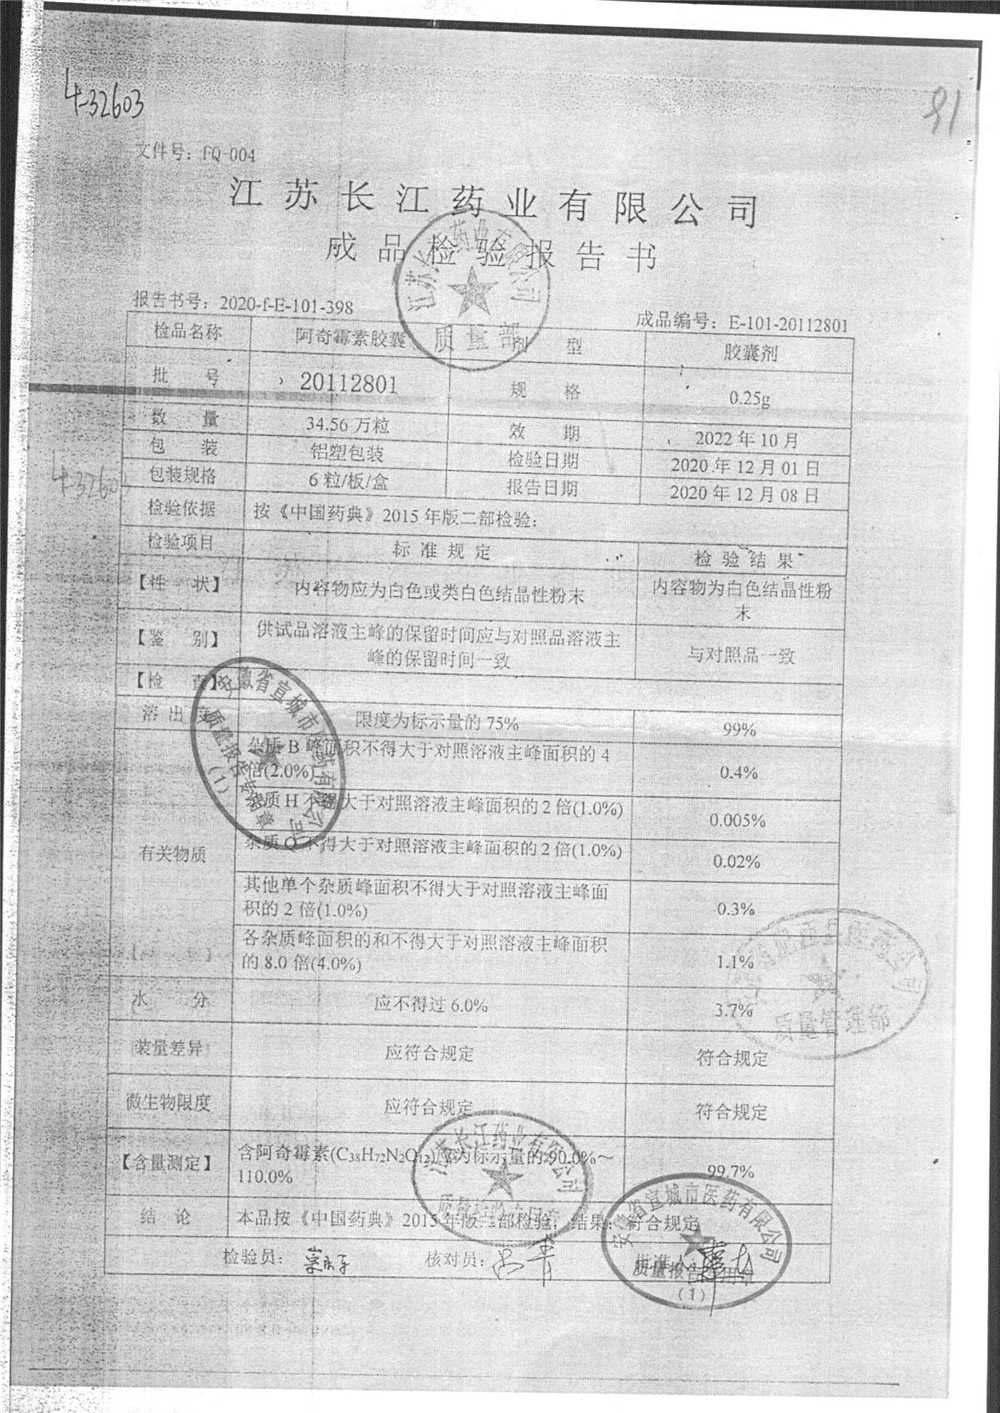 4-32603
91
文件号：fQ-004
江苏长江药业有限公司
成品检验报告书
报告书号：2020-f-E-101-398
成品编号：E-101-20112801
检品名称 阿奇霉素胶囊 剂 型 胶囊剂
批 号 20112801 规 格 0.25g
数 量 34.56 万粒 效 期 2022 年 10 月
包 装 铝塑包装 检验日期 2020 年 12 月 01 日
包装规格 6 粒/板/盒 报告日期 2020 年 12 月 08 日
4-32603
检验依据 按《中国药典》2015 年版二部检验：
检验项目 标 准 规 定 检 验 结 果
【性 状】 内容物应为白色或类白色结晶性粉末 内容物为白色结晶性粉
末
【鉴 别】 供试品溶液主峰的保留时间应与对照品溶液主
峰的保留时间一致 与对照品一致
【检 查】
溶 出 度 限度为标示量的 75% 99%
有关物质
杂质 B 峰面积不得大于对照溶液主峰面积的 4
倍(2.0%) 0.4%
杂质 H 不得大于对照溶液主峰面积的 2 倍(1.0%) 0.005%
杂质 Q 不得大于对照溶液主峰面积的 2 倍(1.0%) 0.02%
其他单个杂质峰面积不得大于对照溶液主峰面
积的 2 倍(1.0%) 0.3%
各杂质峰面积的和不得大于对照溶液主峰面积
的 8.0 倍(4.0%) 1.1%
水 分 应不得过 6.0% 3.7%
装量差异 应符合规定 符合规定
微生物限度 应符合规定 符合规定
【含量测定】 含阿奇霉素(C38H72N2O12)应为标示量的 90.0%～
110.0% 99.7%
结 论 本品按《中国药典》2015 年版二部检验，结果：符合规定
检验员： 核对员： 批准人
江苏长江药业有限公司
质量部
安徽省宣城市医药有限公司
质量报告专用章
(1)
质量管理部
江苏长江药业有限公司
安徽省宣城市医药有限公司
质量报告专用章
(1)